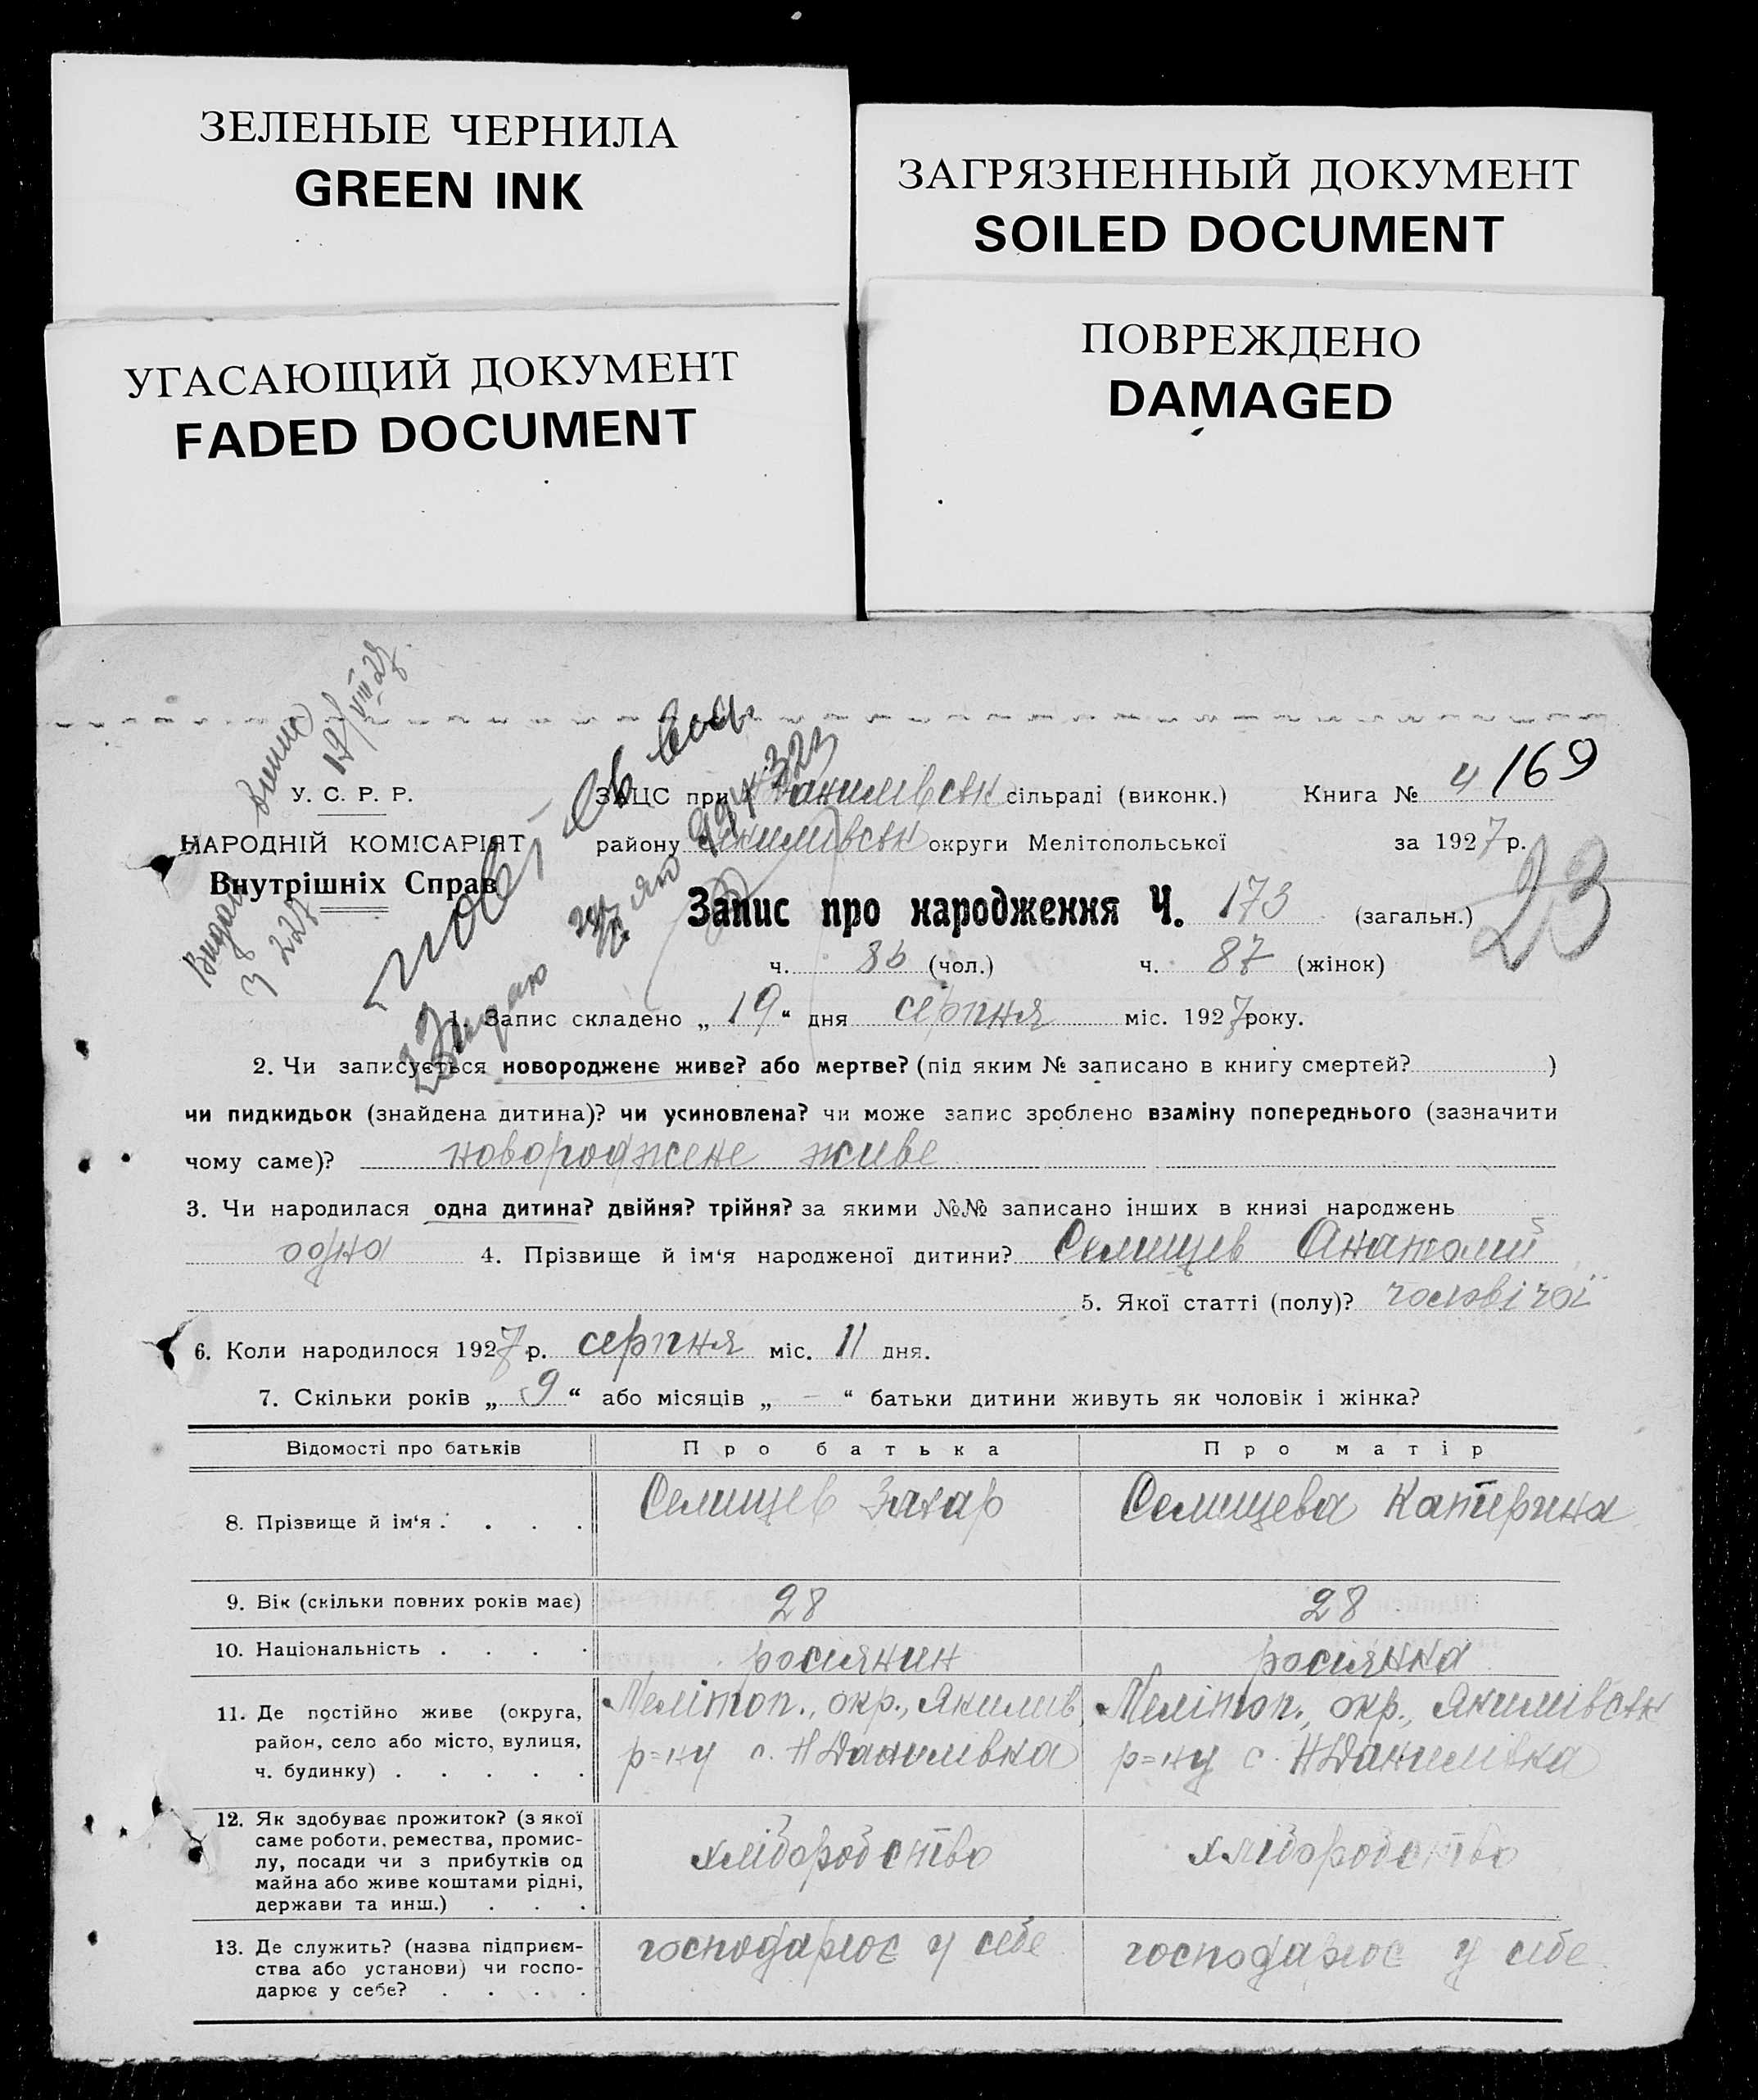 ЗЕЛЕНЫЕ ЧЕРНИЛА
GREEN INK
ЗАГРЯЗНЕННЫЙ ДОКУМЕНТ
SOILED DOCUMENT
УГАСАЮЩИЙ ДОКУМЕНТ
FADED DOCUMENT
ПОВРЕЖДЕНО
DAMAGED
У. С. Р. Р.
НАРОДНІЙ КОМІСАРІЯТ
Внутрішніх Справ
ЗАЦС при Данилівськ сільраді (виконк.) Книга № 4 169
району Якимівськ округи Мелітопольської за 1927 р.
Запис про народження Ч. 173 (загальн.) 23
ч. 86 (чол.) ч. 87 (жінок)
1. Запис складено „ 19 “ дня серпня міс. 1927 року.
2. Чи записується новороджене живе? або мертве? (під яким № записано в книгу смертей? )
чи пидкидьок (знайдена дитина)? чи усиновлена? чи може запис зроблено взаміну попереднього (зазначити
чому саме)? новороджене живе
3. Чи народилася одна дитина? двійня? трійня? за якими №№ записано інших в книзі народжень
одна 4. Прізвище й ім‘я народженої дитини? Селищев Анатолий
5. Якої статті (полу)? чоловічої
6. Коли народилося 1927 р. серпня міс. 11 дня.
7. Скільки років „ 9 “ або місяців „ – “ батьки дитини живуть як чоловік і жінка?
Відомості про батьків Про батька Про матір
8. Прізвище й ім‘я . . . . . Селищев Захар Селищева Катерина
9. Вік (скільки повних років має) 28 28
10. Національність . . . . росиянин росиянка
11. Де постійно живе (округа, Мелітоп., окр., Якимив Мелітоп., окр., Якимівськ
район, село або місто, вулиця, р=ну с. НДанилівка р=ну с. НДанилівка
ч. будинку) . . . . .
12. Як здобуває прожиток? (з якої
саме роботи, ремества, промис-
лу, посади чи з прибутків од хліборобство хліборобство
майна або живе коштами рідні,
держави та инш.) . . .
13. Де служить? (назва підприєм- господарює у себе господарює у себе
ства або установи) чи госпо-
дарює у себе? . . . .